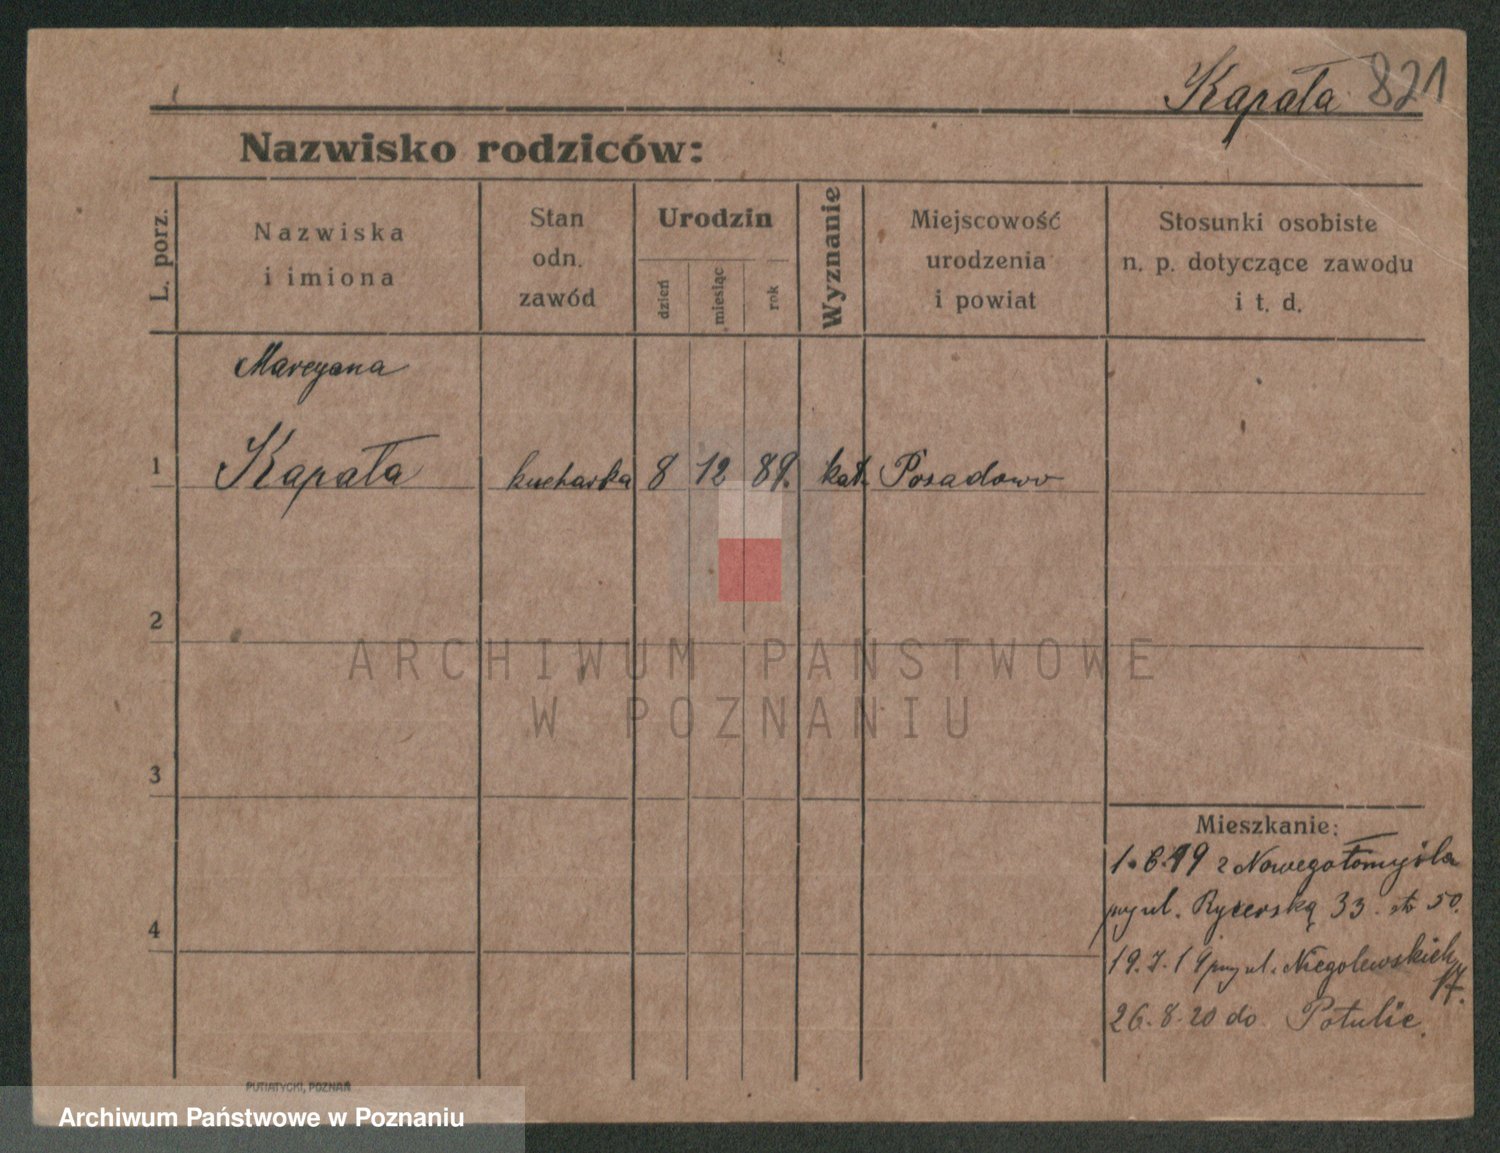 Kapała 821
Nazwisko rodziców:
L. porz.
Nazwiska
i imiona
Stan
odn.
zawód
Urodzin
dzień
miesiąc
rok
Wyznanie
Miejscowość
urodzenia
i powiat
Stosunki osobiste
n. p. dotyczące zawodu
i t. d.
Maryanna
1 Kapała kucharka 8 12 89. kat. Posadowo
2
3
4
Mieszkanie:
1.6.19 z Nowegotomyśla
przy ul. Rycerską 33. 50.
19.7.19 przy ul. Niegolewskich
17.
26.8.20 do Potulic.
PUTIATYCKI, POZNAŃ
ARCHIWUM PAŃSTWOWE
W POZNANIU
Archiwum Państwowe w Poznaniu